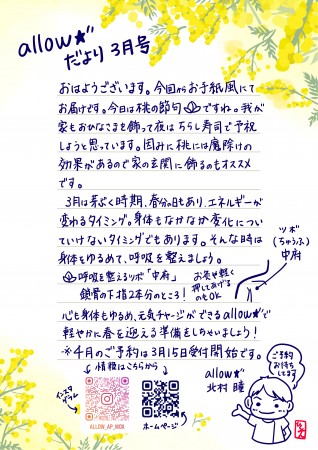 allow
だより 3月号
おはようございます。今回からお手紙風にて
お届けです。今日は桃の節句 ですね。我が
家もおひなさまを飾って夜はちらし寿司で予祝
しようと思っています。因みに桃には魔除けの
効果があるので家の玄関に飾るのもオススメ
です。
3月は芽ぶく時期、春分の日もあり、エネルギーが
変わるタイミング。身体もなかなか変化につい
ていけないタイミングでもあります。そんな時は
身体をゆるめて、呼吸を整えましょう。
呼吸を整えるツボ「中府」
鎖骨の下指2本分のところ!
お灸や軽く
押してあげる
のもOK
ツボ
(ちゅうふ)
中府
心も身体もゆるめ、元気チャージができるallowで
軽やかに春を迎える準備をしませんしょう!
※4月のご予約は3月15日受付開始です。
情報はこちらから
インスタ
グラム
ALLOW_AP_MOX
ホームページ
allow
北村 瞳
ご予約
お待ち
してます